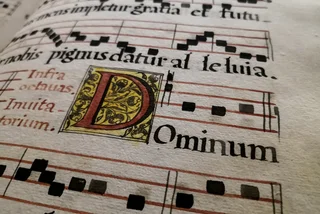 mens impletur gratia et futu
nobis pignus datur alleluia.
Infra
octauas.
Inuita
torium.
DOminum